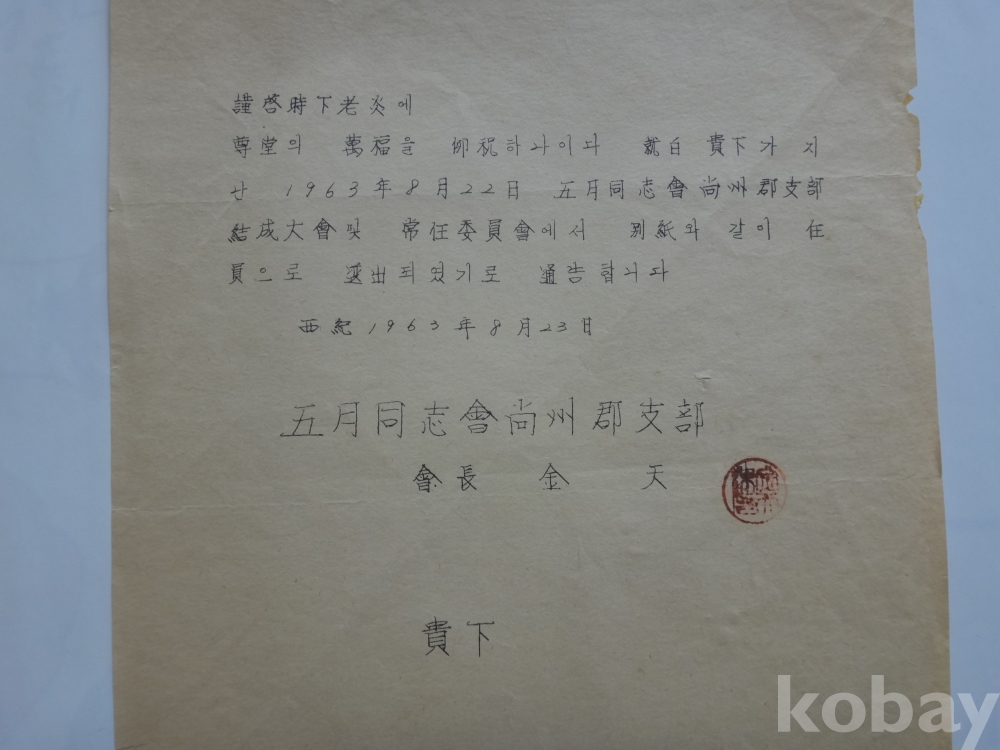 謹啓時下老炎에
尊堂의 萬福을 仰祝하나이다 就白 貴下가 지
난 1963年 8月 22日 五月同志會尙州郡支部
結成大會및 常任委員會에서 別紙와 같이 任
員으로 選出되였기로 通告합니다
西紀 1963年 8月 23日
五月同志會尙州郡支部
會長 金 天
貴下
kobay